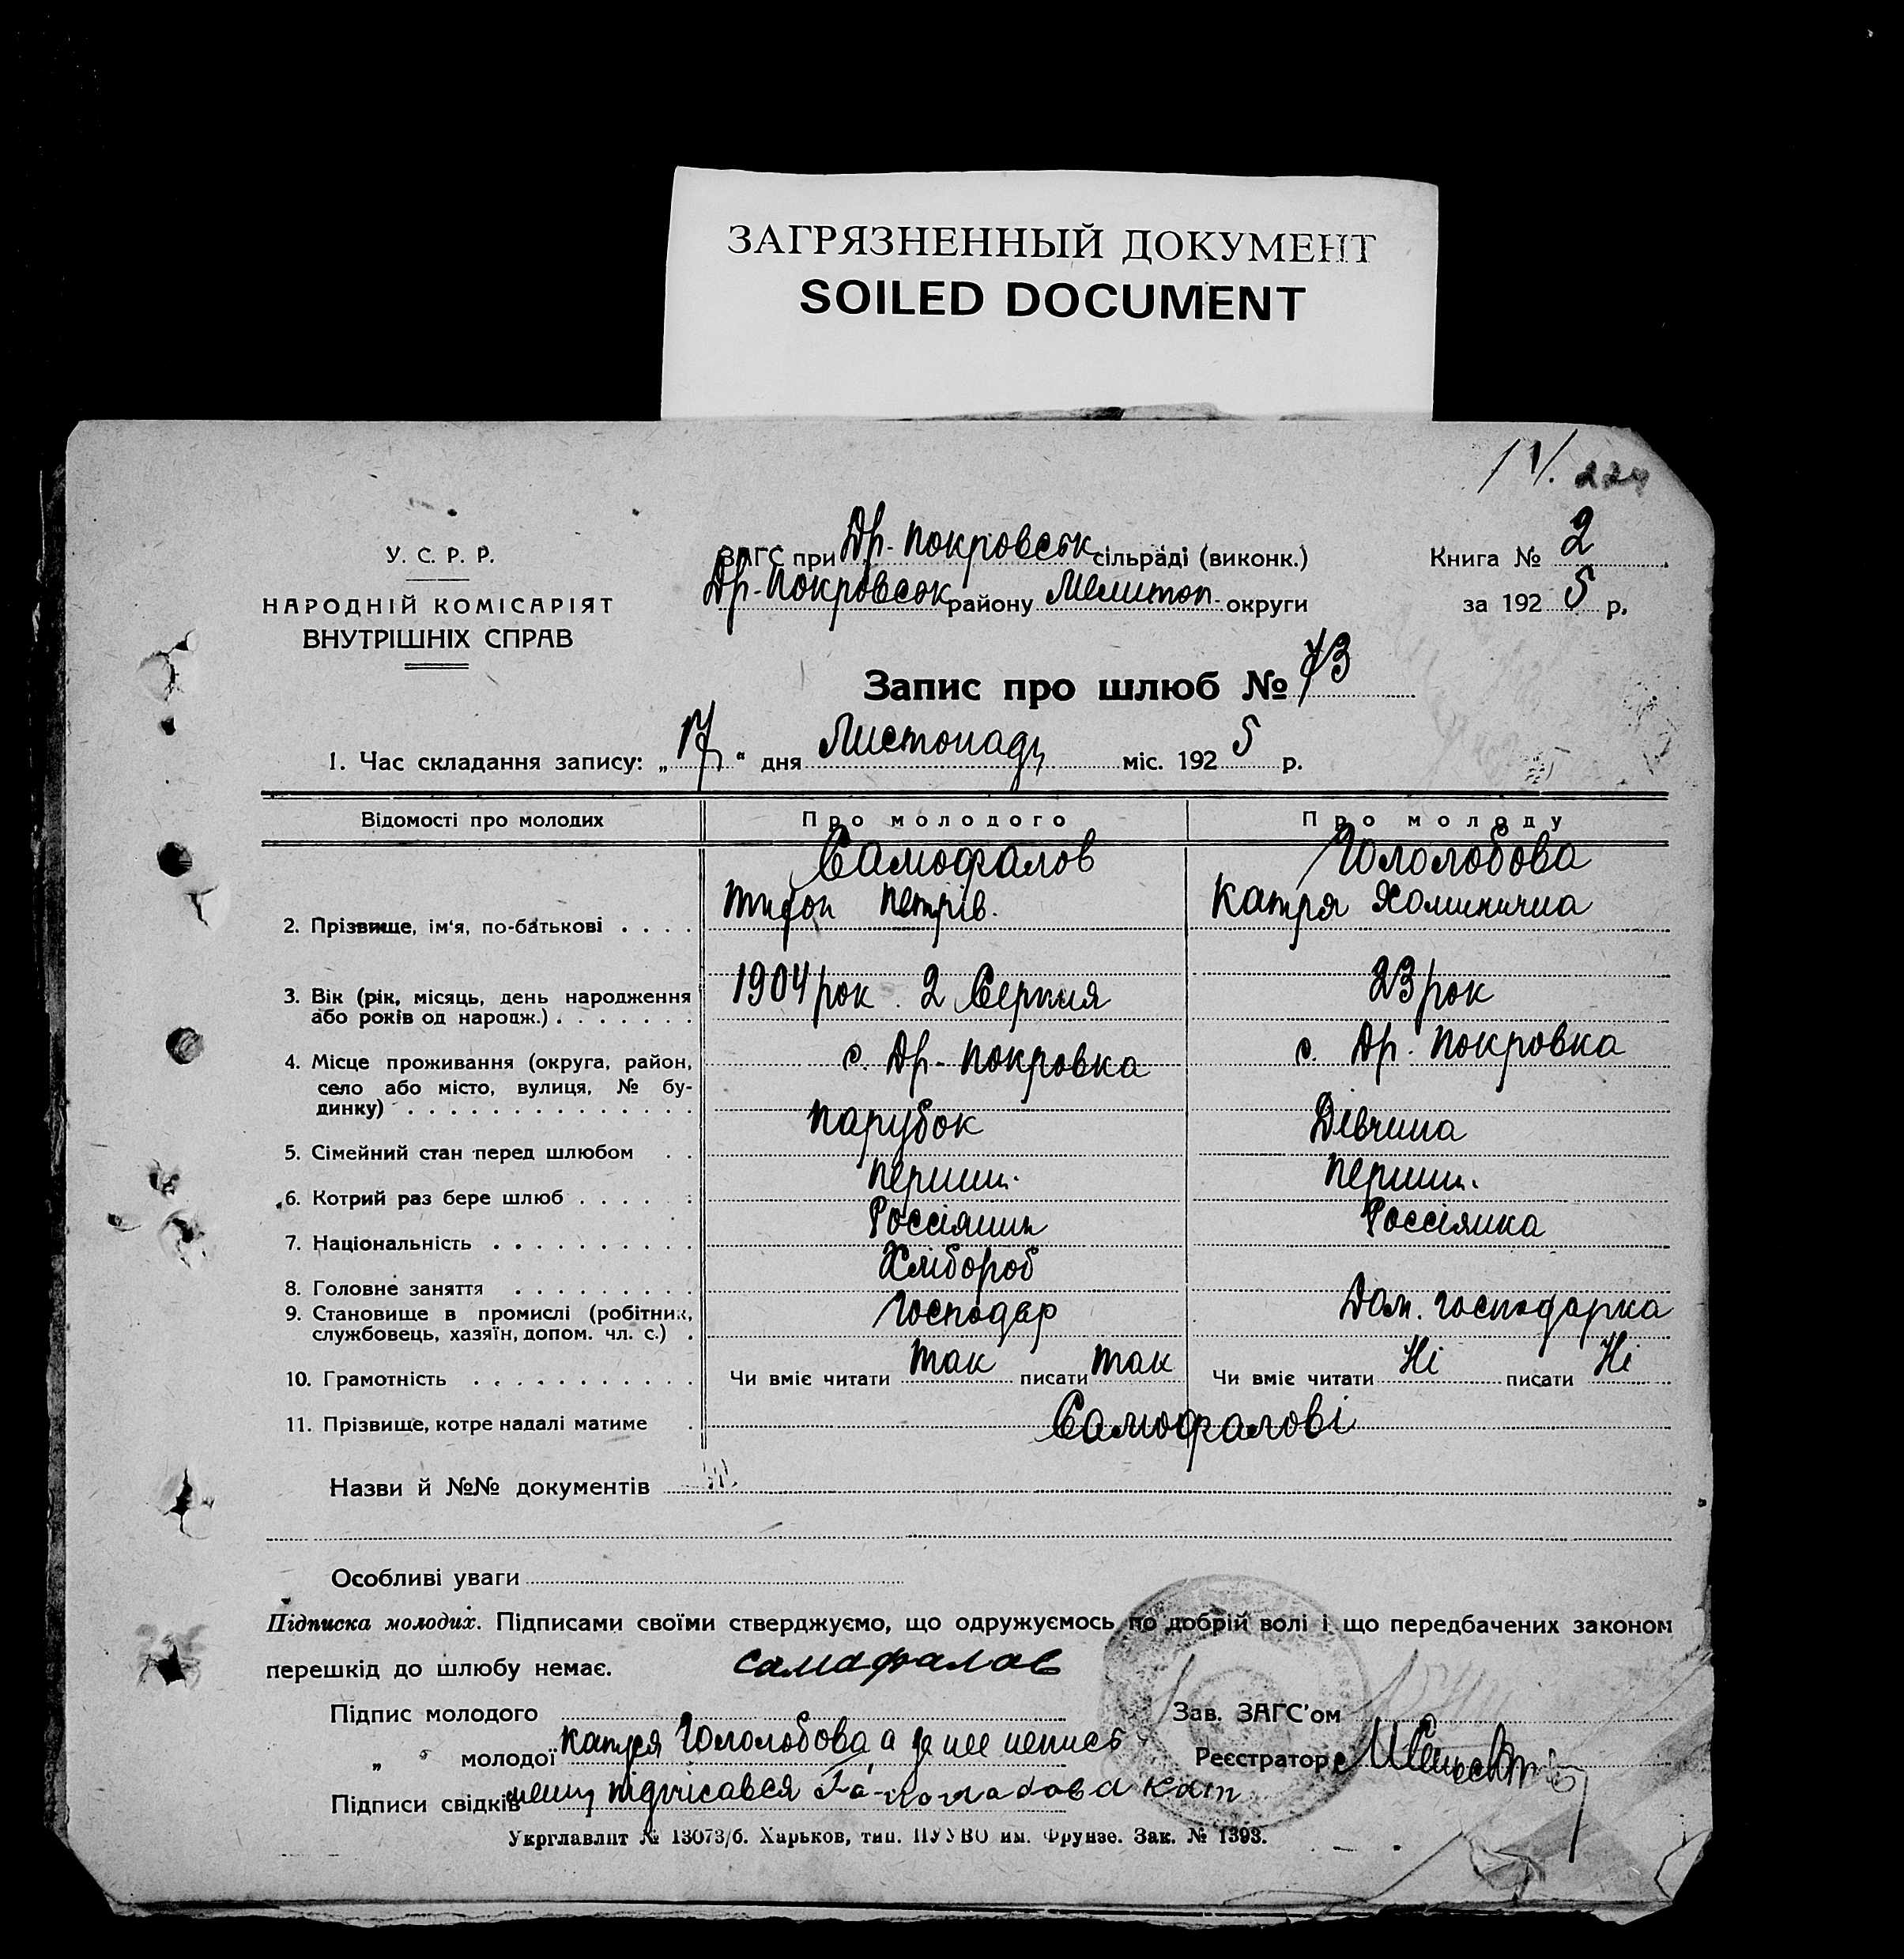 ЗАГРЯЗНЕННЫЙ ДОКУМЕНТ
SOILED DOCUMENT
У. С. Р. Р.
НАРОДНІЙ КОМІСАРІЯТ
ВНУТРІШНІХ СПРАВ
ЗАГС при Др.-Покровськ сільраді (виконк.)
Др.-Покровськ району Мелитоп. округи
Книга № 2
за 1925 р.
Запис про шлюб № 73
1. Час складання запису: „17“ дня Листопаду міс. 1925 р.
Відомості про молодих Про молодого Про молоду
Самофалов Гололобова
2. Прізвище, ім'я, по-батькові . . . . Тифон Петрів. Катря Хоминична
3. Вік (рік, місяць, день народження 1904 рок. 2 Серпня 23 рок
або років од народж.) . . . . . . .
4. Місце проживання (округа, район, с. Др.-Покровка с. Др. Покровка
село або місто, вулиця, № бу-
динку) . . . . . . . . . . . . . .
5. Сімейний стан перед шлюбом . . Парубок Дівчина
6. Котрий раз бере шлюб . . . . : Перший. Перший.
7. Національність . . . . . . . . . . Россіянин Россіянка
8. Головне заняття . . . . . . . . . Хлібороб
9. Становище в промислі (робітник, Господар Дом. господарка
службовець, хазяїн, допом. чл. с.) .
10. Грамотність . . . . . . . . . . . Чи вміє читати так писати так Чи вміє читати Ні писати Ні
11. Прізвище, котре надалі матиме . Самофалові
Назви й №№ документів
Особливі уваги
Підписка молодих. Підписами своїми стверджуємо, що одружуємось по добрій волі і що передбачених законом
перешкід до шлюбу немає. Самафалов
Підпис молодого Зав. ЗАГС'ом
„ „ молодої Катря Гололобова а за нее непись Реєстратор
Підписи свідків менну підпісався
Укрглавлит № 13073/б. Харьков, тип. ПУУВО им. Фрунзе. Зак. № 1393.